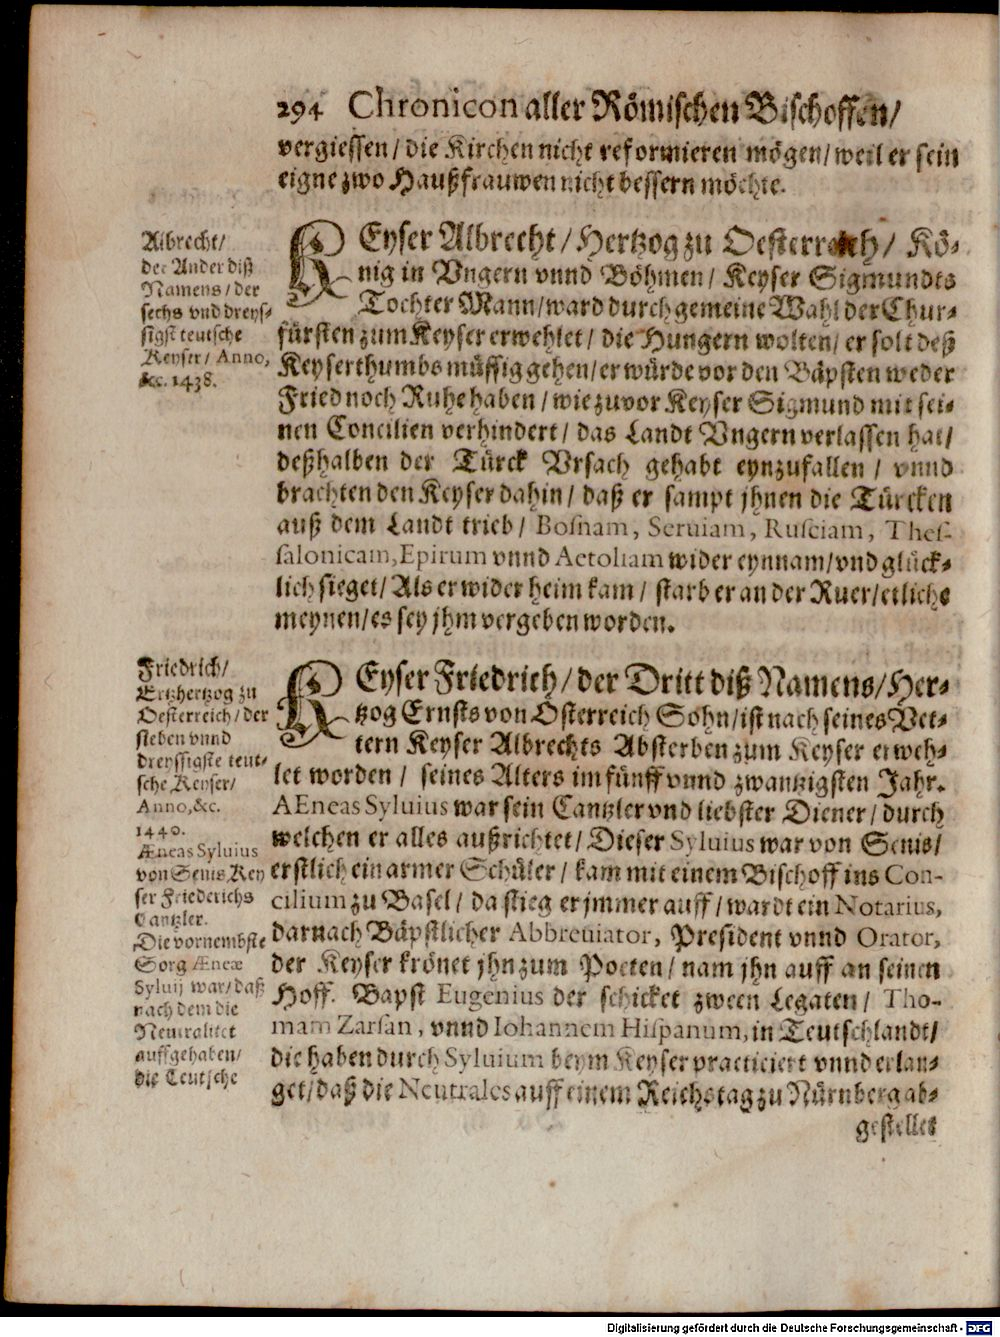 294 Chronicon aller Römischen Bischoffen/
vergiessen/ die Kirchen nicht reformieren mögen/ weil er sein
eigne zwo Haußfrauwen nicht bessern möchte.
Albrecht/
der Ander diß
Namens/ der
sechs vnd dreys-
sigst teutsche
Keyser/ Anno,
&c. 1438.
KEyser Albrecht/ Hertzog zu Oesterreich/ Kö-
nig in Vngern vnnd Böhmen/ Keyser Sigmundts
Tochter Mann/ ward durch gemeine Wahl der Chur-
fürsten zum Keyser erwehlet/ die Hungern wolten/ er solt deß
Keyserthumbs müssig gehen/ er würde vor den Bäpsten weder
Fried noch Ruhe haben/ wie zuvor Keyser Sigmund mit sei-
nen Concilien verhindert/ das Landt Vngern verlassen hat/
deßhalben der Türck Vrsach gehabt eynzufallen/ vnnd
brachten den Keyser dahin/ daß er sampt jhnen die Türcken
auß dem Landt trieb/ Bosnam, Seruiam, Rusciam, Thes-
salonicam, Epirum vnnd Aetoliam wider eynnam/ vnd glück-
lich sieget/ Als er wider heim kam/ starb er an der Ruer/ etliche
meynen/ es sey jhm vergeben worden.
Friedrich/
Ertzhertzog zu
Oesterreich/ der
sieben vnnd
dreyssigste teut-
sche Keyser/
Anno, &c.
1440.
Æneas Syluius
von Senis Key
ser Friederichs
Cantzler.
Die vornembste
Sorg Æneæ
Syluij war/ daß
nach dem die
Neutralitet
auffgehaben/
die Teutsche
KEyser Friedrich/ der Dritt diß Namens/ Her-
tzog Ernsts von Osterreich Sohn/ ist nach seines Vet-
tern Keyser Albrechts Absterben zum Keyser erweh-
let worden/ seines Alters im fünff vnnd zwantzigsten Jahr.
AEneas Syluius war sein Cantzler vnd liebster Diener/ durch
welchen er alles außrichtet/ Dieser Syluius war von Senis/
erstlich ein armer Schüler/ kam mit einem Bischoff ins Con-
cilium zu Basel/ da stieg er jmmer auff/ wardt ein Notarius,
darnach Bäpstlicher Abbreuiator, President vnnd Orator,
der Keyser krönet jhn zum Poeten/ nam jhn auff an seinen
Hoff. Bapst Eugenius der schicket zween Legaten/ Tho-
mam Zarsan, vnnd Iohannem Hispanum, in Teutschlandt/
die haben durch Syluium beym Keyser practiciert vnnd erlan-
get/ daß die Neutrales auff einem Reichstag zu Nürnberg ab-
gestellet
Digitalisierung gefördert durch die Deutsche Forschungsgemeinschaft - DFG